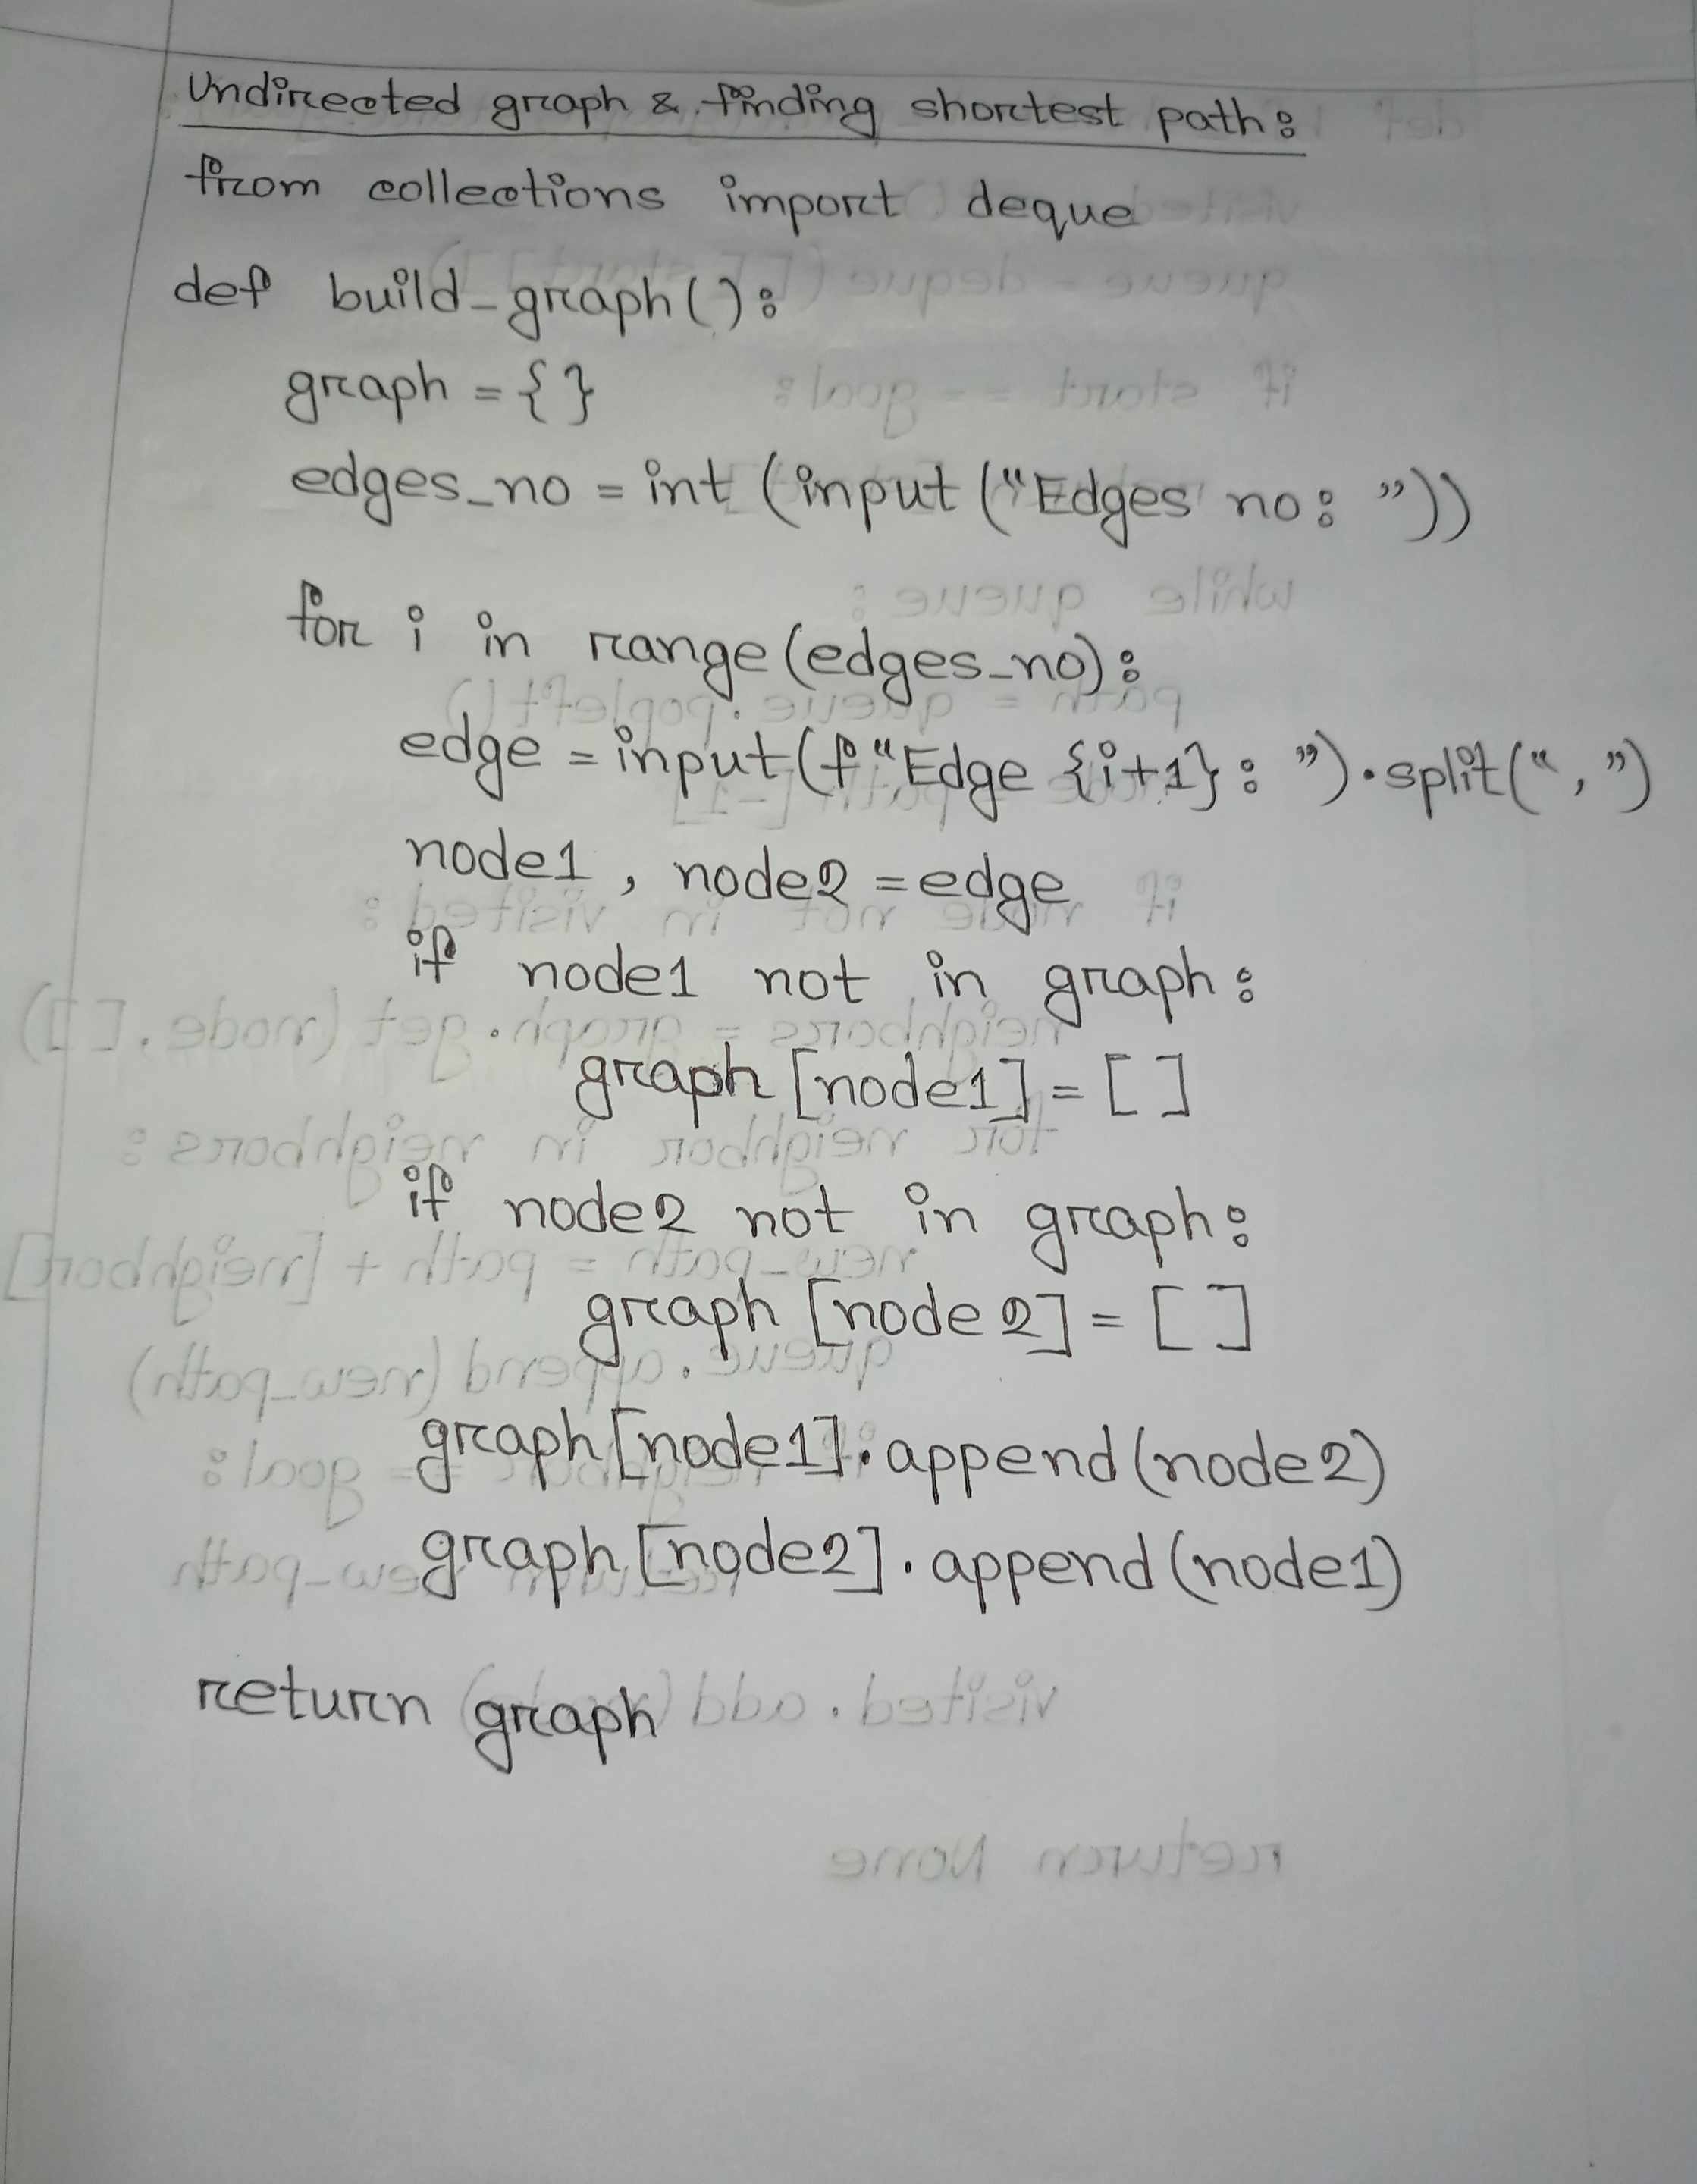 Undirected graph & finding shortest path:
from collections import deque
def build_graph():
graph = { }
edges_no = int (input ("Edges no: "))
for i in range(edges_no):
edge = input(f"Edge {i+1}: ").split(",")
node1, node2 = edge
if node1 not in graph:
graph [node1] = [ ]
if node2 not in graph:
graph [node2] = [ ]
graph[node1].append(node2)
graph[node2].append(node1)
return graph